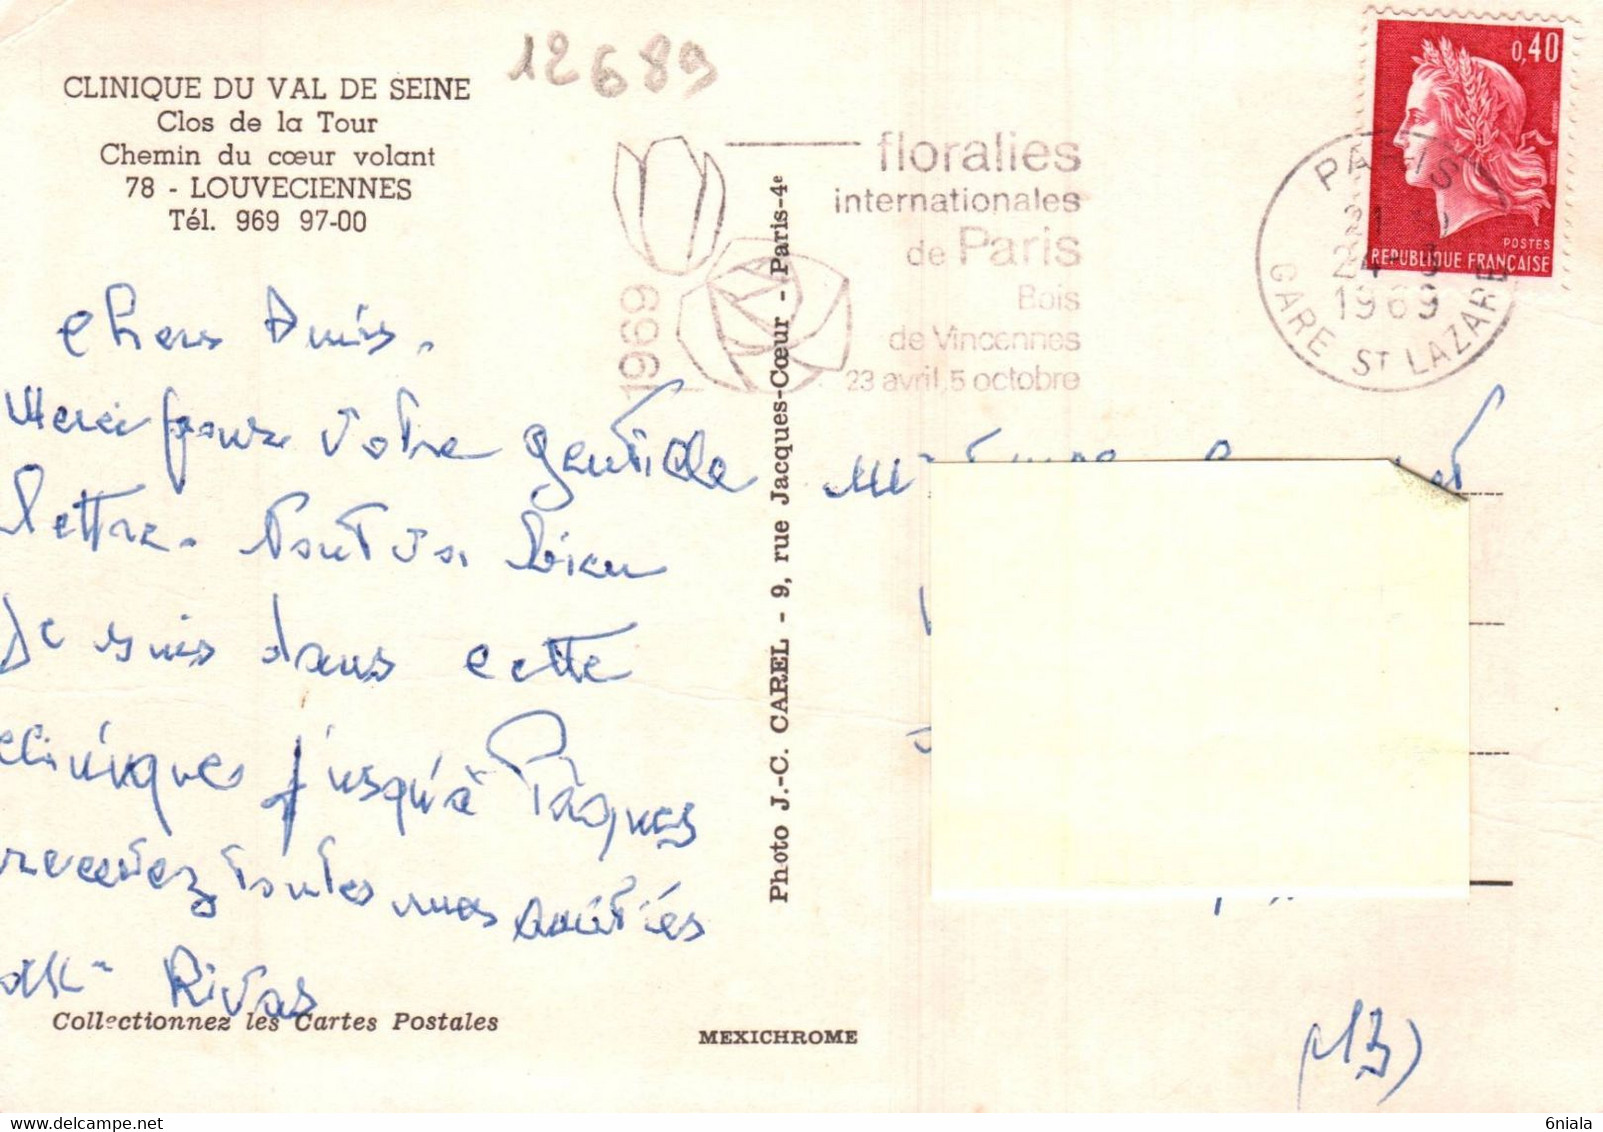 12689
CLINIQUE DU VAL DE SEINE
Clos de la Tour
Chemin du cœur volant
78 - LOUVECIENNES
Tél. 969 97-00
chers Amis.
Merci pour votre gentille
lettre. Tout va bien
Je suis dans cette
clinique jusqu'à Pâques
recevez toutes mes amitiés
Rivas
Collectionnez les Cartes Postales
MEXICHROME
Photo J.-C. CAREL - 9, rue Jacques-Cœur - Paris-4e
1969
floralies
internationales
de Paris
Bois
de Vincennes
23 avril, 5 octobre
PARIS
24 - 3
1969
GARE ST LAZARE
0,40
POSTES
REPUBLIQUE FRANÇAISE
(13)
6niala